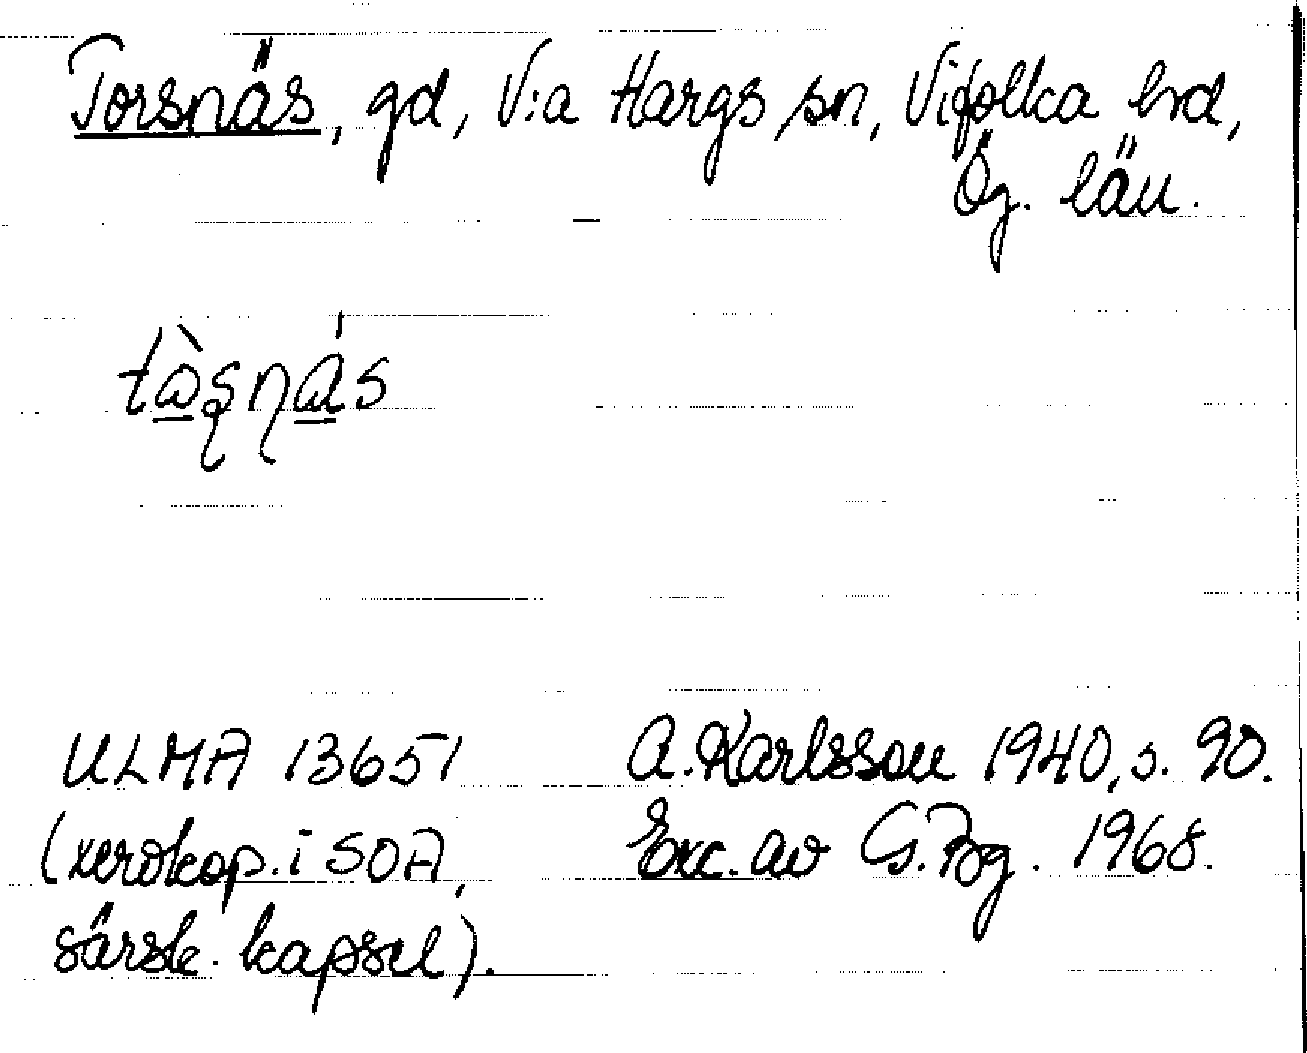 Torsnäs, gd, V:a Hargs sn, Vifolka hd,
Ög. län.
ULMA 13651
(xerokop. i SOA,
särsk. kapsel).
A. Karlsson 1940, s. 90.
Exc. av G. Bg. 1968.